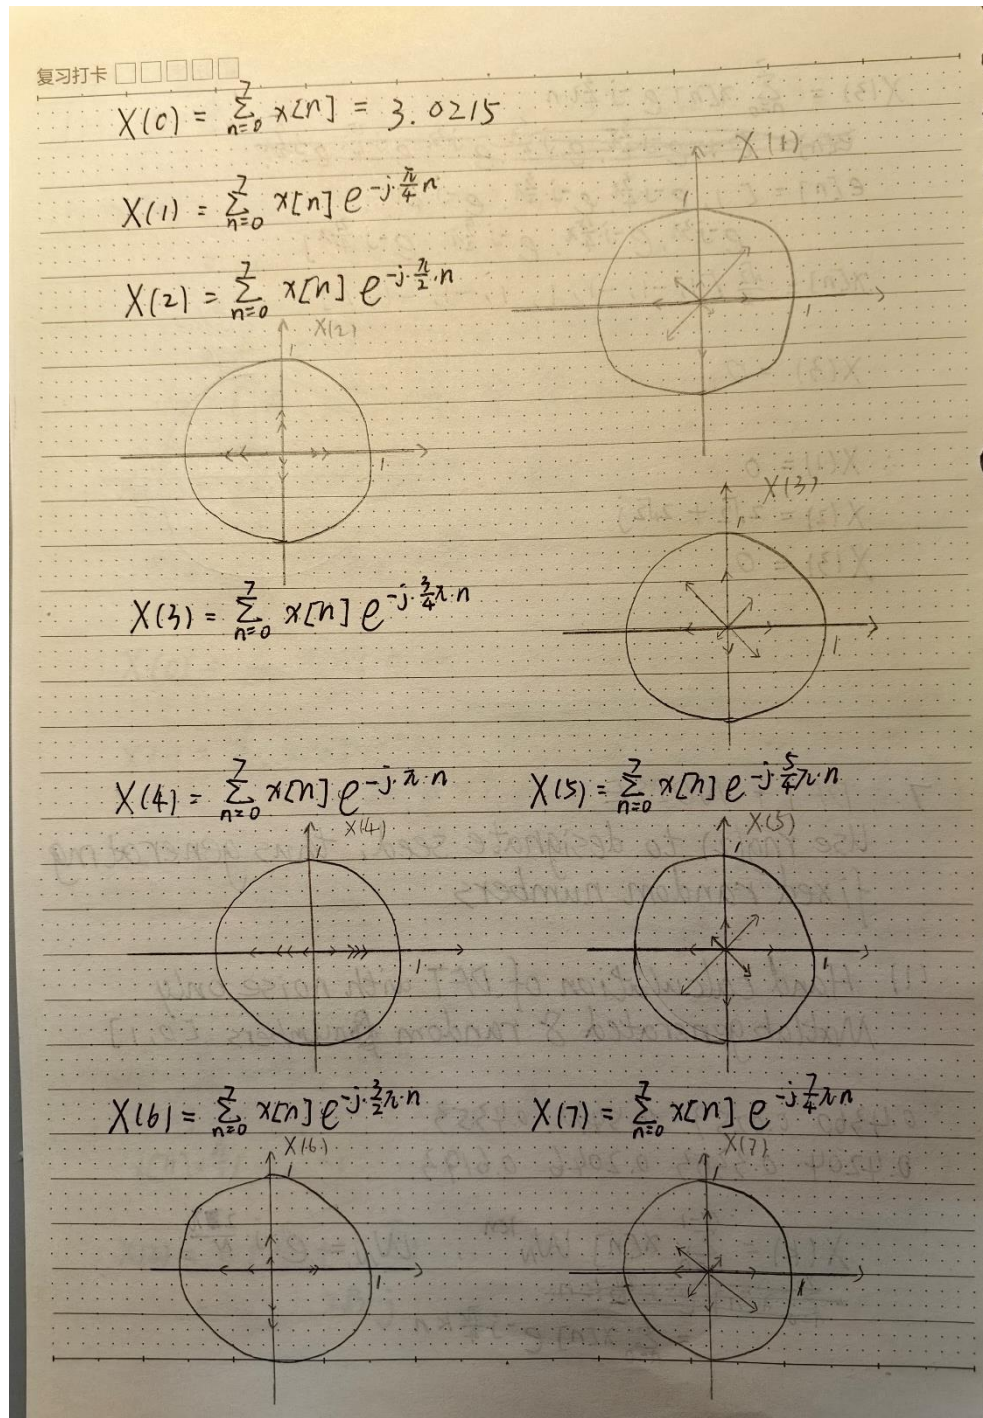 复习打卡
X(0) = \sum_{n=0}^{7} x[n] = 3.0215
X(1)
X(1) = \sum_{n=0}^{7} x[n] e^{-j·\frac{π}{4}n}
1
X(2) = \sum_{n=0}^{7} x[n] e^{-j·\frac{π}{2}·n}
1
X(2)
1
1
X(3)
1
X(3) = \sum_{n=0}^{7} x[n] e^{-j·\frac{3}{4}π·n}
1
X(4) = \sum_{n=0}^{7} x[n] e^{-j·π·n}
X(5) = \sum_{n=0}^{7} x[n] e^{-j·\frac{5}{4}π·n}
X(4)
1
1
X(5)
1
1
X(6) = \sum_{n=0}^{7} x[n] e^{-j·\frac{3}{2}π·n}
X(7) = \sum_{n=0}^{7} x[n] e^{-j·\frac{7}{4}π·n}
X(6)
1
1
X(7)
1
1